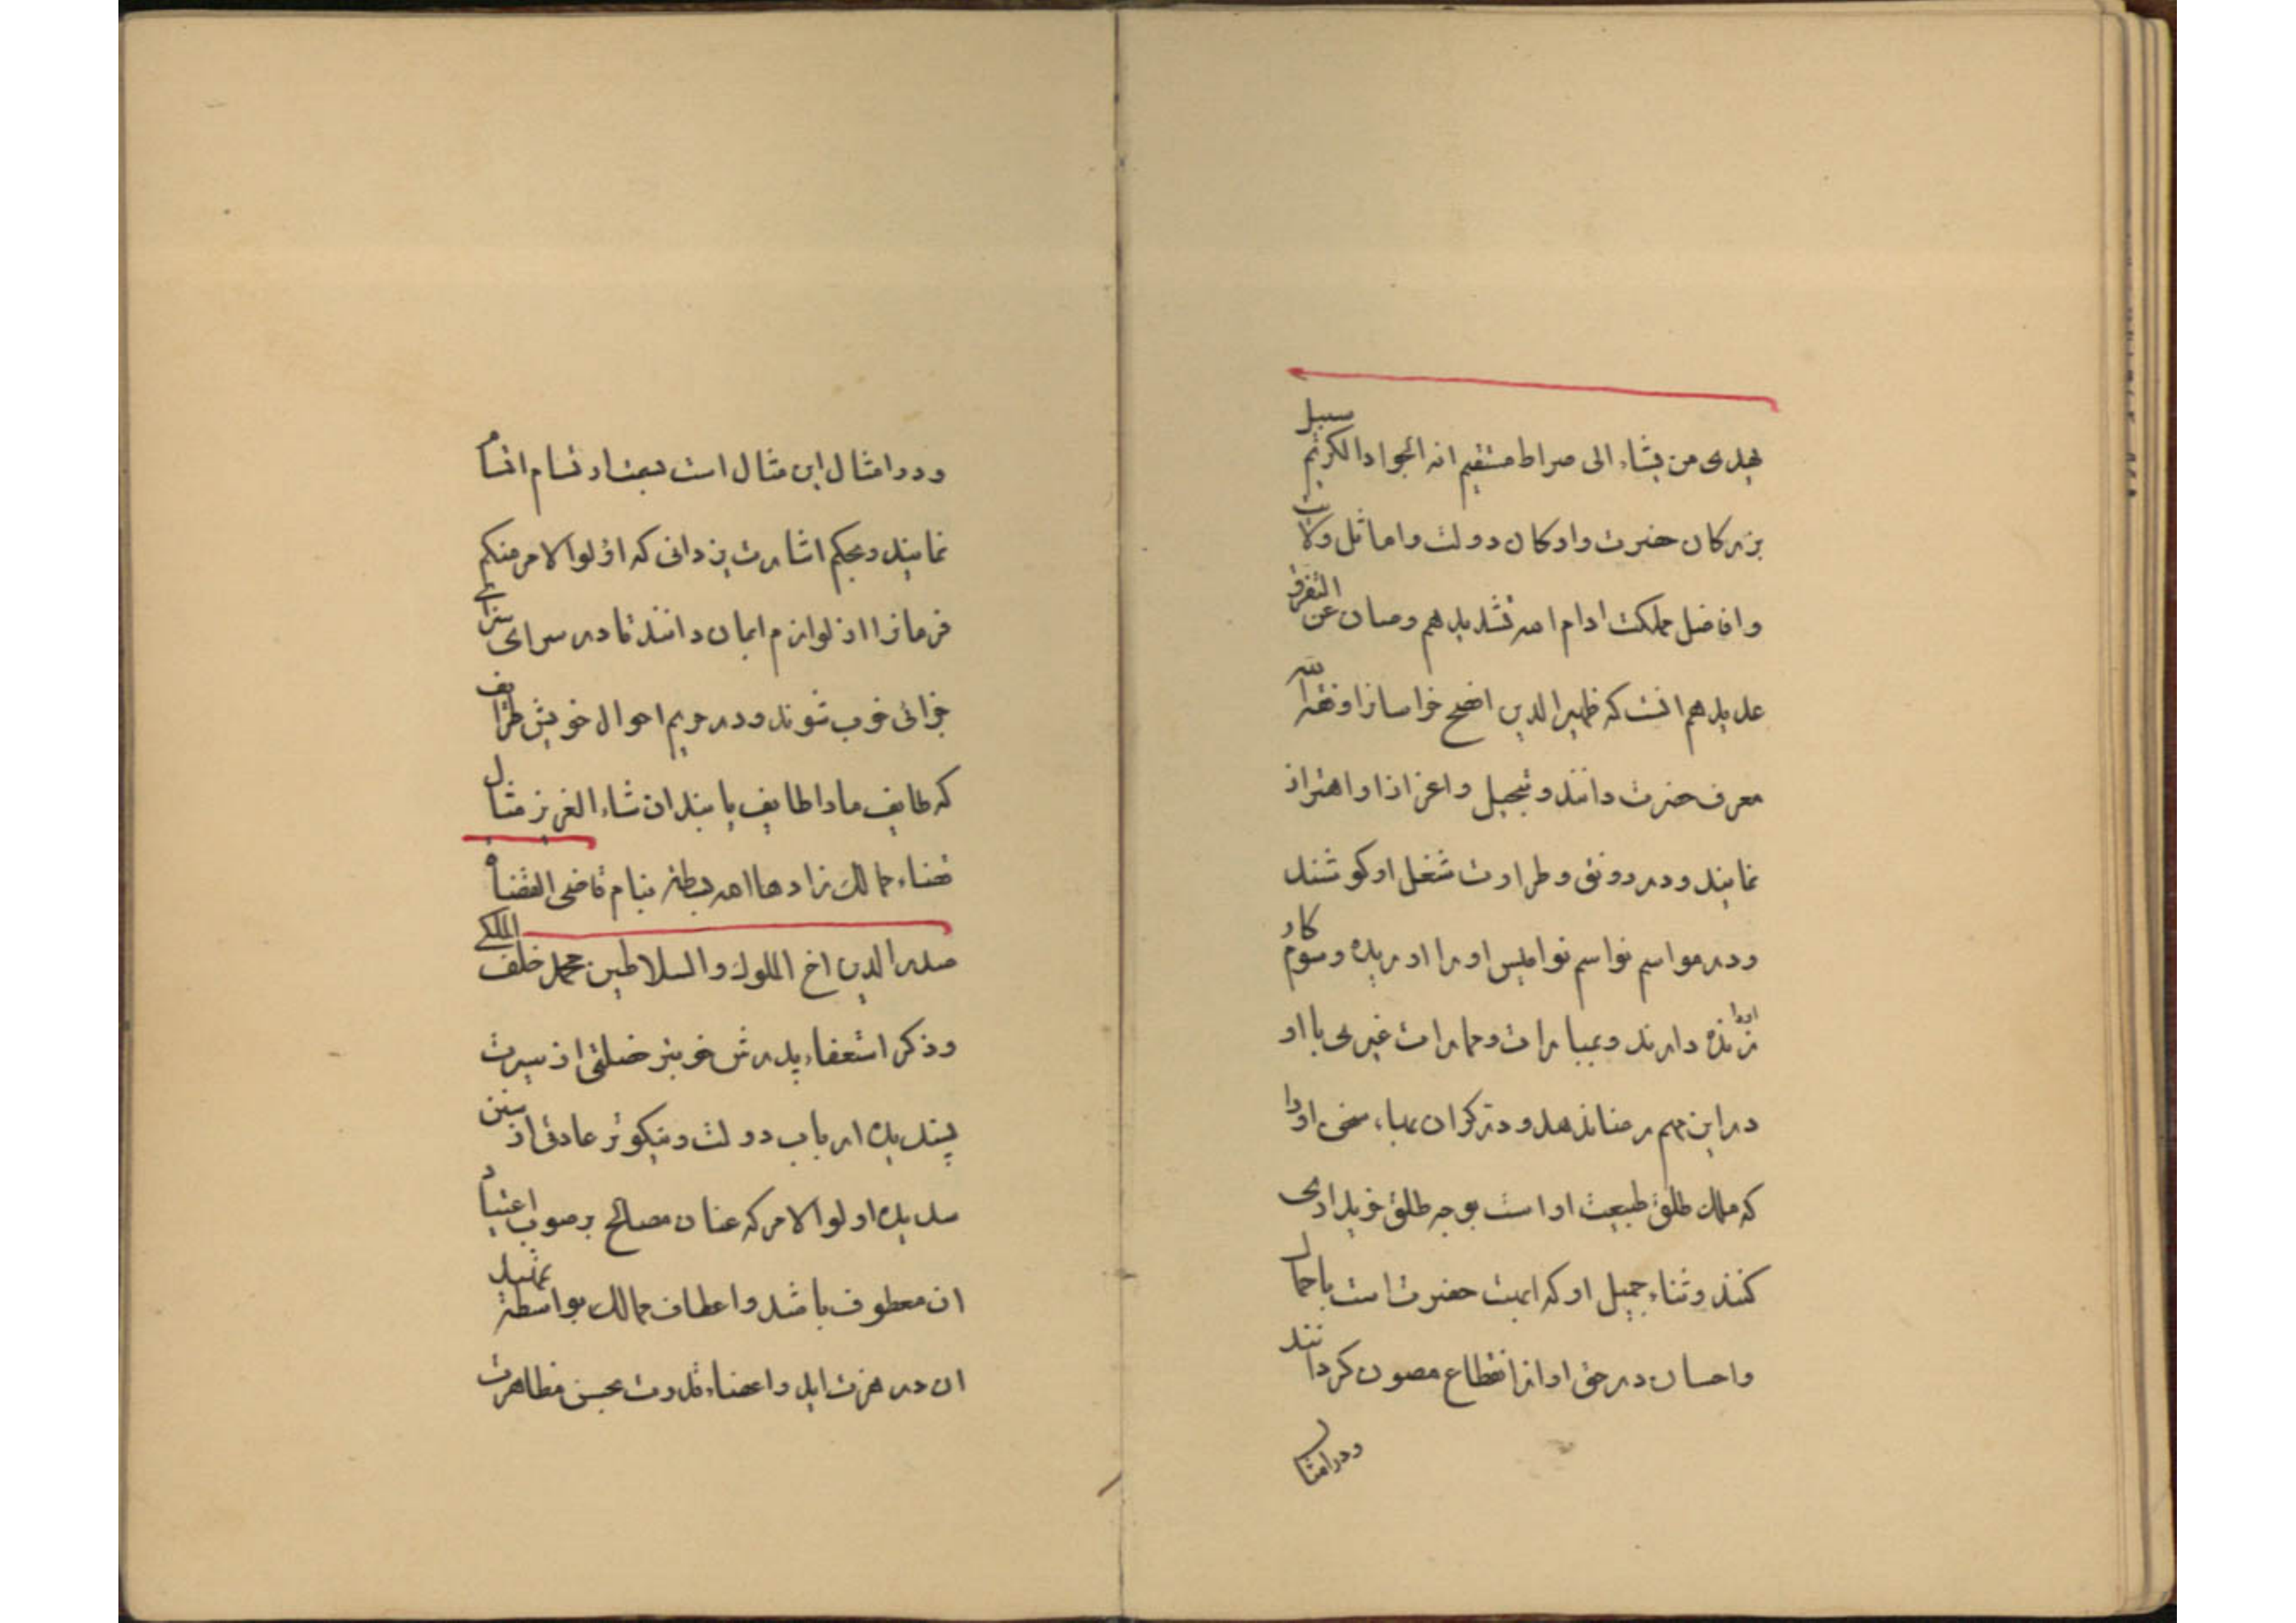 یهدی من یشاء الی صراط مستقیم انه الجواد الکریم سبیل
بزرکان حضرت وارکان دولت واماثل ولایت
وافاضل مملکت ادام الله تشدیدهم وصان عن التفرق
عدیدهم انست که ظهیرالدین افصح خراسانرا وفقه الله
معرف حضرت دانند وتبجیل واعزازا واهتزاز
نمایند ودر رونق وطراوت شغل اوکوشند
ودر مواسم نواسم نوامیس اورا وسوم کار
اورا زنده دارند وبمبارات وممارات غیری با او
دراین مهم رضا ندهند سخن اورا
که ملک طلق طبیعت اواست بوجه طلق خریداری
کنند وثناء جمیل اوکه حضرت است باجمال
واحسان درحق اواز انقطاع مصون کردانند
ودرامثال
ودرامثال این مثال است
نمایند وبحکم اشارت یزدانی که اولوالامر منکم
فرمانرا از لوازم ایمان دانند تا در سرای سزای
جزائی خوب شوند ودر حریم احوال خویش طرایف
که طایف مادا طایف یابند ان شاء العزیز مثال
قضاء ممالک زادها الله بسطة بنام قاضی القضاة
صدرالدین اخ الملوک والسلاطین محمد خلف الملکی
وذکر استعفاء پدرش خوبتر خصلتی از سیرت
پسندیده ارباب دولت ونیکوتر عادتی از سنن
سدیده اولوالامر که عنان مصالح برصوب اعتیاد
ان معطوف باشد واعطاف ممالک بواسطه تمثیل
ان در هزت اید واعضاء قدرت بحسن مظاهرت